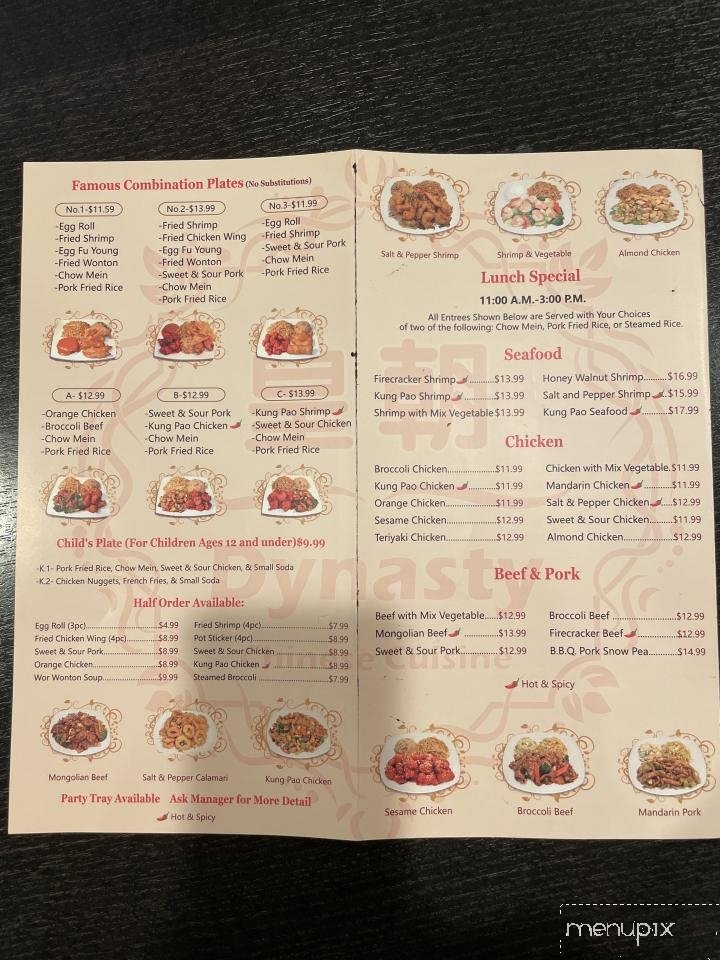 Famous Combination Plates (No Substitutions)
No.1-$11.59
-Egg Roll
-Fried Shrimp
-Egg Fu Young
-Fried Wonton
-Chow Mein
-Pork Fried Rice
No.2-$13.99
-Fried Shrimp
-Fried Chicken Wing
-Egg Fu Young
-Fried Wonton
-Sweet & Sour Pork
-Chow Mein
-Pork Fried Rice
No.3-$11.99
-Egg Roll
-Fried Shrimp
-Sweet & Sour Pork
-Chow Mein
-Pork Fried Rice
A- $12.99
-Orange Chicken
-Broccoli Beef
-Chow Mein
-Pork Fried Rice
B-$12.99
-Sweet & Sour Pork
-Kung Pao Chicken
-Chow Mein
-Pork Fried Rice
C- $13.99
-Kung Pao Shrimp
-Sweet & Sour Chicken
-Chow Mein
-Pork Fried Rice
Child's Plate (For Children Ages 12 and under)$9.99
-K.1- Pork Fried Rice, Chow Mein, Sweet & Sour Chicken, & Small Soda
-K.2- Chicken Nuggets, French Fries, & Small Soda
Half Order Available:
Egg Roll (3pc)..........$4.99
Fried Chicken Wing (4pc)..........$8.99
Sweet & Sour Pork..........$8.99
Orange Chicken..........$8.99
Wor Wonton Soup..........$9.99
Fried Shrimp (4pc)..........$7.99
Pot Sticker (4pc)..........$8.99
Sweet & Sour Chicken..........$8.99
Kung Pao Chicken..........$8.99
Steamed Broccoli..........$7.99
Mongolian Beef
Salt & Pepper Calamari
Kung Pao Chicken
Party Tray Available Ask Manager for More Detail
Hot & Spicy
Salt & Pepper Shrimp
Shrimp & Vegetable
Almond Chicken
Lunch Special
11:00 A.M.-3:00 P.M.
All Entrees Shown Below are Served with Your Choices
of two of the following: Chow Mein, Pork Fried Rice, or Steamed Rice.
皇朝
Seafood
Firecracker Shrimp..........$13.99
Kung Pao Shrimp..........$13.99
Shrimp with Mix Vegetable$13.99
Honey Walnut Shrimp..........$16.99
Salt and Pepper Shrimp..$15.99
Kung Pao Seafood..........$17.99
Chicken
Broccoli Chicken..........$11.99
Kung Pao Chicken..........$11.99
Orange Chicken..........$11.99
Sesame Chicken..........$12.99
Teriyaki Chicken..........$12.99
Chicken with Mix Vegetable.$11.99
Mandarin Chicken..........$11.99
Salt & Pepper Chicken...$12.99
Sweet & Sour Chicken..........$11.99
Almond Chicken..........$12.99
Dynasty
Beef & Pork
Beef with Mix Vegetable.....$12.99
Mongolian Beef..........$13.99
Sweet & Sour Pork..........$12.99
Broccoli Beef..........$12.99
Firecracker Beef..........$12.99
B.B.Q. Pork Snow Pea.....$14.99
Chinese Cuisine
Hot & Spicy
Sesame Chicken
Broccoli Beef
Mandarin Pork
menupix